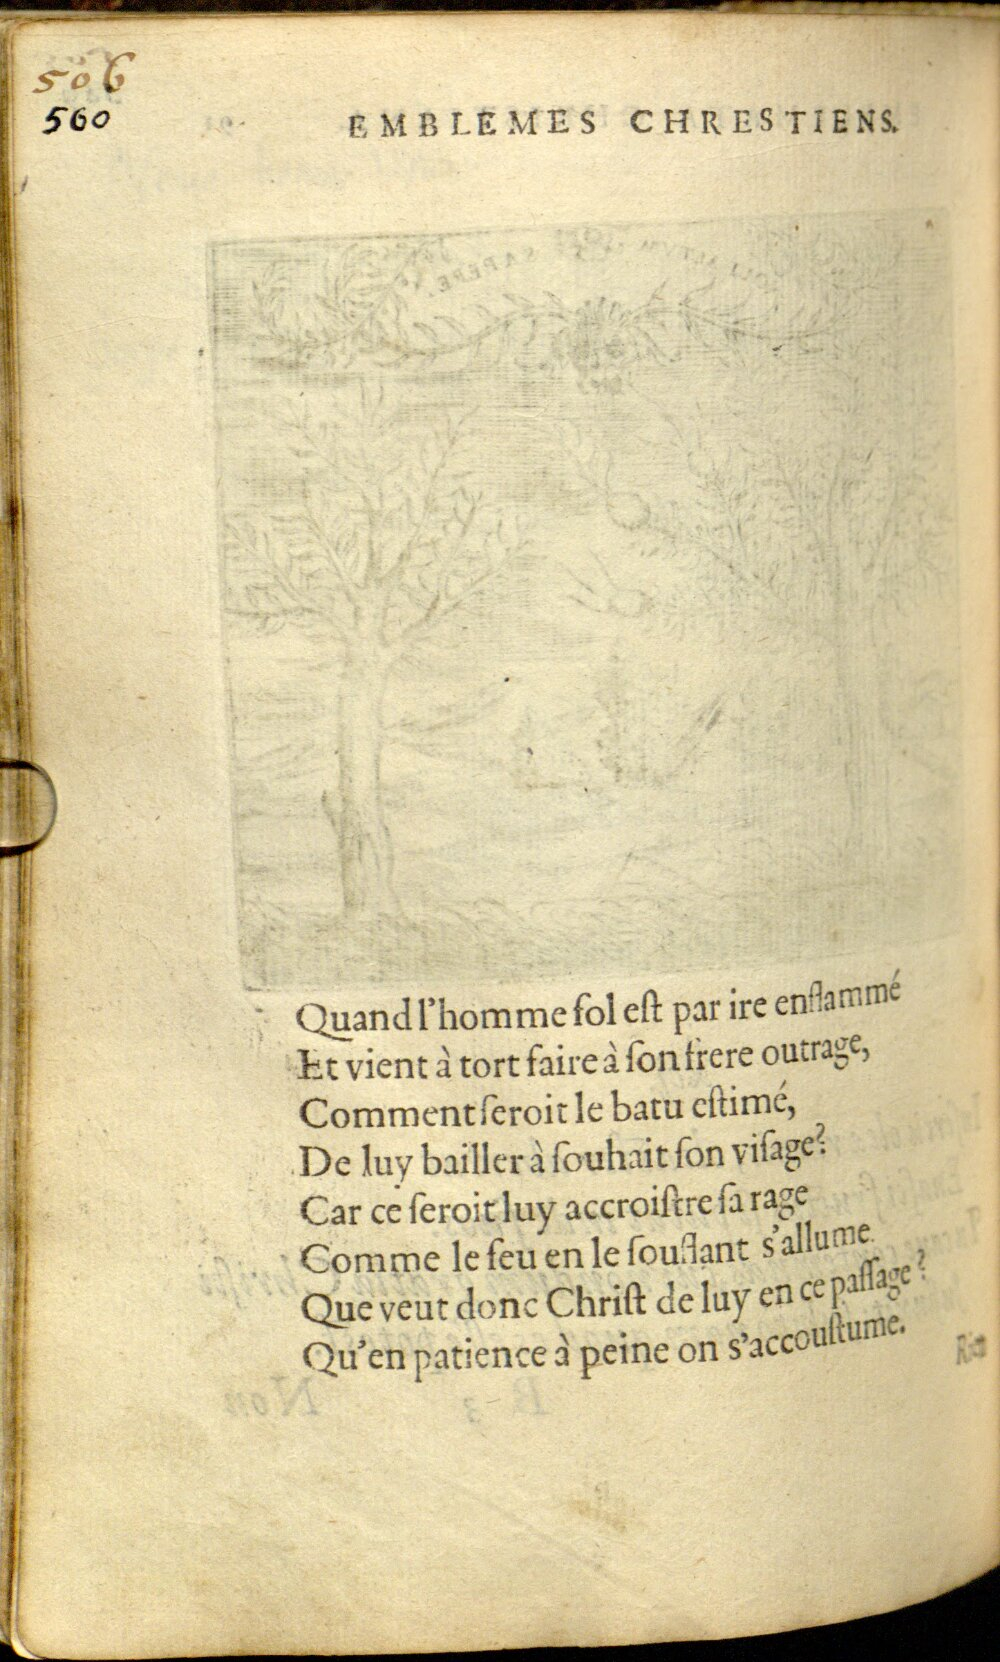 506
560
EMBLEMES CHRESTIENS.
Quand l'homme fol eſt par ire enflammé
Et vient à tort faire à ſon frere outrage,
Comment ſeroit le batu eſtimé,
De luy bailler à ſouhait ſon viſage?
Car ce ſeroit luy accroiſtre ſa rage
Comme le feu en le ſouflant s'allume.
Que veut donc Chriſt de luy en ce paſſage?
Qu'en patience à peine on s'accouſtume.